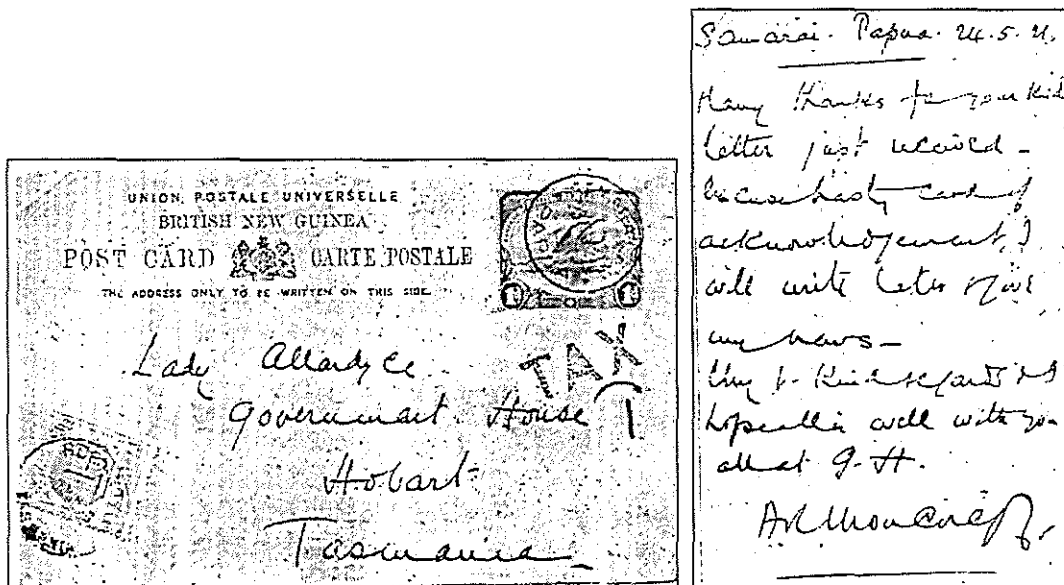 UNION POSTALE UNIVERSELLE
BRITISH NEW GUINEA
POST CARD CARTE POSTALE
THE ADDRESS ONLY TO BE WRITTEN ON THIS SIDE.
TAX
Lady Allardyce
Government House
Hobart
Tasmania
Samarai. Papua. 24.5.21.
Many thanks for your kind
letter just received -
Excuse hasty card of
acknowledgement, I
will write later & give
my news -
Kind regards
hope all is well with you
all at G. H.